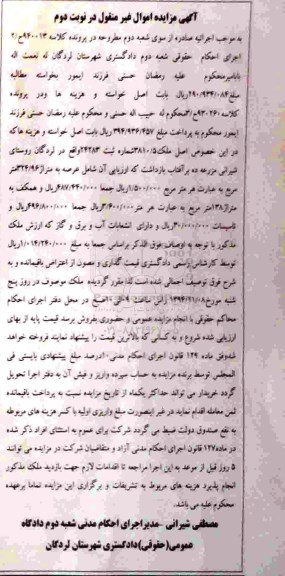 آگهی مزایده اموال غیر منقول در نوبت دوم
به موجب اجرائیه صادره از سوی شعبه دوم مطروحه در پرونده کلاسه ۹۴۰۰۱۳ج/۲
اجرای احکام حقوقی شعبه دوم دادگستری شهرستان لردگان له نعمت اله
بابامیر محکوم علیه رمضان حسنی فرزند ایمور بخواسته مطالبه
مبلغ ۲۹۰/۹۳۴/۰۸۴ریال بابت اصل خواسته و هزینه ها ودر پرونده
کلاسه ۹۳۰۲۶۰ج/۳محکوم له حبیب اله حسنی و محکوم علیه رمضان حسنی فرزند
ایمور محکوم به پرداخت مبلغ ۳۹۴/۹۳۶/۴۵۷ ریال بابت اصل خواسته و هزینه هاکه
در این خصوص اصل ملک ۳۸۱۰/۵شماره ثبت ۲۴۲۸۳واقع در لردگان روستای
شیرانی مزرعه ده برآفتاب بازداشت که ارزیابی آن شامل عرصه به متراژ ۳۲۴/۹۶متر
مربع به عبارت هر متر مربع ۱/۵۰۰/۰۰۰ریال جمعا ۴۸۷/۴۴۰/۰۰۰ ریال و همکف به
متراژ ۱۳۸متر مربع به عبارت هر متر ۳/۶۰۰/۰۰۰ریال جمعا ۴۹۶/۸۰۰/۰۰۰ریال و
تاسیسات ۳۰/۰۰۰/۰۰۰ریال و دارای انشعابات آب و برق و گاز که ارزش ملک
مذکور با توجه به اوصاف فوق الذکر براساس جمعا به مبلغ ۱/۰۱۴/۲۴۰/۰۰۰ریال
توسط کارشناس رسمی دادگستری قیمت گذاری و مصون از اعتراض باقیمانده و به
شرح فوق توصیف اجمالی شده است لذا مقرر گردیده ملک موصوف در روز پنج
شنبه مورخ ۱۳۹۴/۱۱/۰۸ راس ساعت ۹ الی ۱۰صبح در محل دفتر اجرای احکام
محاکم حقوقی با انجام مزایده عمومی و حضوری بفروش برسد قیمت پایه از بهای
ارزیابی شده شروع و به کسانی که بالاترین قیمت را پیشنهاد نمایند فروخته خواهد
شد وفق ماده ۱۲۹ قانون اجرای احکام مدنی ۱۰درصد مبلغ پیشنهادی بایستی فی
المجلس توسط برنده مزایده به حساب سپرده واریز و فیش آن به دفتر اجرا تحویل
گردد خریدار می تواند حداکثر یکماه از تاریخ مزایده نسبت به پرداخت باقیمانده
ثمن معامله اقدام نماید در غیر اینصورت مبلغ واریزی اولیه با کسر هزینه های مربوطه
به نفع صندوق دولت ضبط می گردد شرکت برای عموم به استثنای افراد ذکر شده
در ماده ۱۲۷ قانون اجرای احکام مدنی آزاد و متقاضیان شرکت در مزایده می توانند
۵ روز قبل از موعد به این اجرا مراجعه تا اقدامات لازم جهت بازدید ملک مذکور
انجام پذیرد هزینه های مربوط به تشریفات و برگزاری این مزایده تماما برعهده
محکوم علیه می باشد.
مصطفی شیرانی -مدیر اجرای احکام مدنی شعبه دوم دادگاه
عمومی(حقوقی)دادگستری شهرستان لردگان